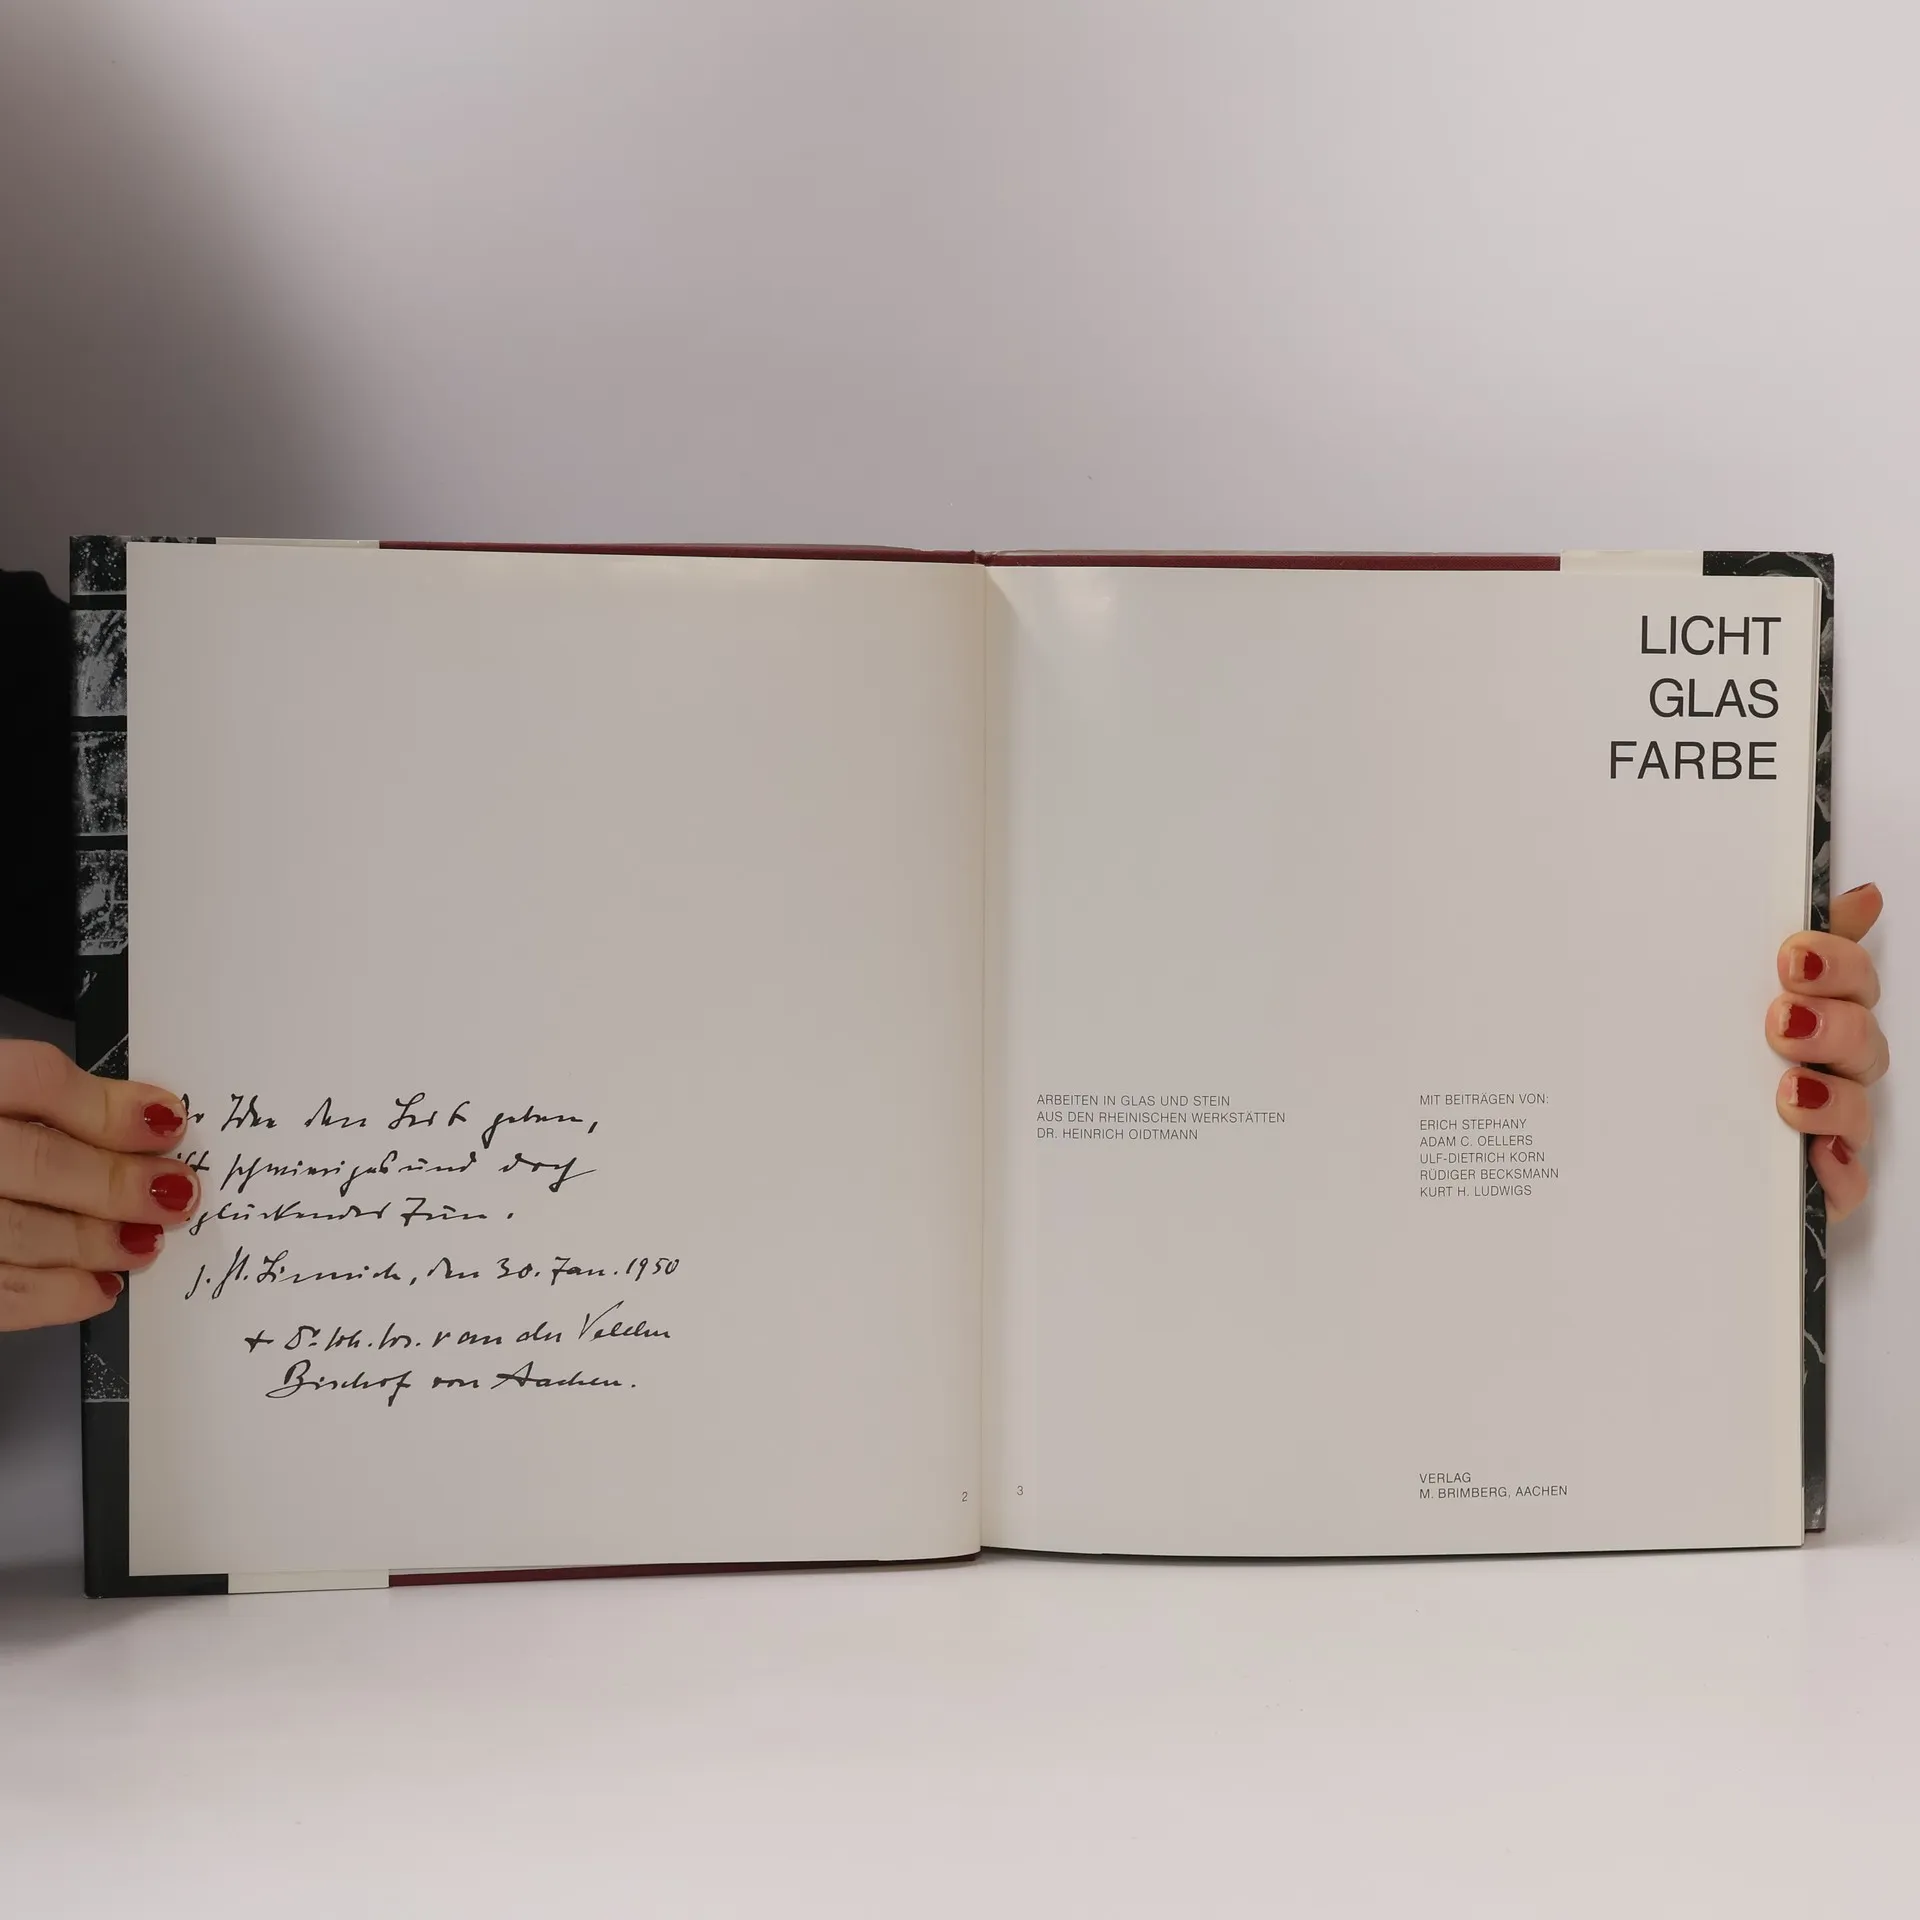 Idee den Leib geben,
ist schwieriges und doch
beglückendes Tun.
z. Zt. Linnich, den 30. Jan. 1950
+ Dr. Joh. Jos. van der Velden
Bischof von Aachen.
2
LICHT
GLAS
FARBE
ARBEITEN IN GLAS UND STEIN
AUS DEN RHEINISCHEN WERKSTÄTTEN
DR. HEINRICH OIDTMANN
MIT BEITRÄGEN VON:
ERICH STEPHANY
ADAM C. OELLERS
ULF-DIETRICH KORN
RÜDIGER BECKSMANN
KURT H. LUDWIGS
VERLAG
M. BRIMBERG, AACHEN
3